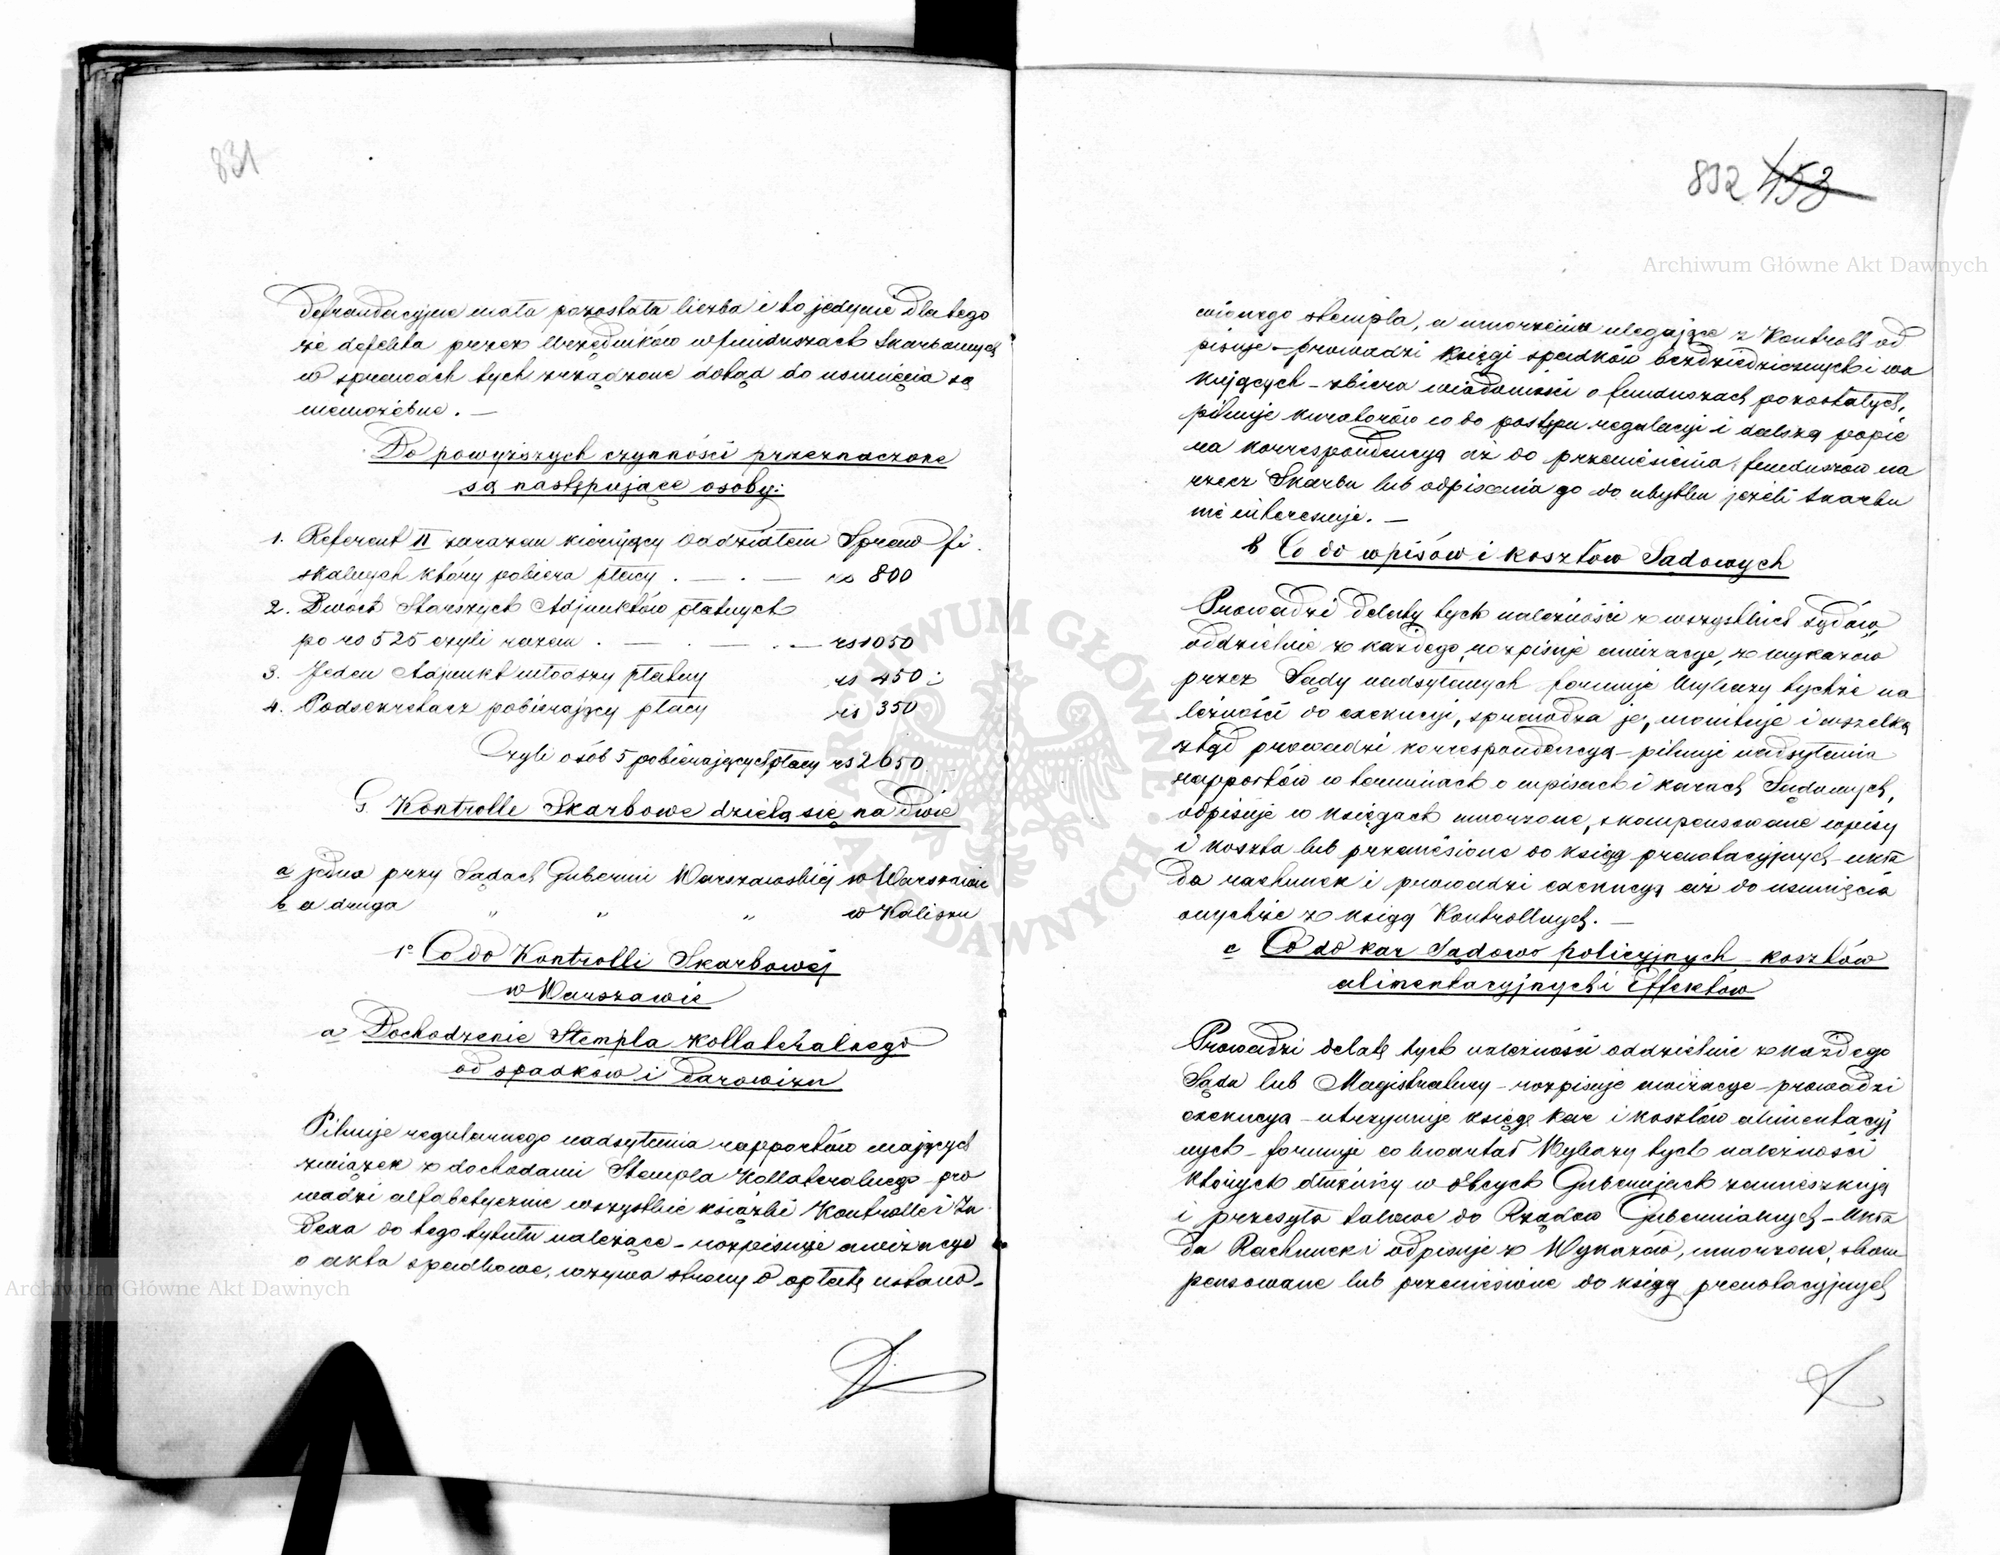 831
defraudacyjne mała pozostała liczba i to jedynie dla tego
że defekta przez Urzędników w funduszach Skarbowych
w sprawach tych zrządzone dotąd do usunięcia są
niemożebne. —
Do powyższych czynności przeznaczone
są następujące osoby:
1. Referent II zarazem kierujący Oddziałem Spraw fi
skalnych który pobiera płacy . — . — rs 800
2. Dwóch Starszych Adjunktów płatnych
po rs 525 czyli razem . — . — . — rs 1050
3. Jeden Adjunkt młodszy płatny rs 450
4. Podsekretarz pobierający płacy rs 350
Czyli osób 5 pobierających płacy rs 2650
G. Kontrolle Skarbowe dzielą się na dwie
a jedna przy Sądach Gubernii Warszawskiej w Warszawie
b a druga „ „ „ w Kaliszu
1° Co do Kontrolli Skarbowej
w Warszawie
a Dochodzenie Stempla kollateralnego
od spadków i darowizn
Pilnuje regularnego nadsyłania rapportów mających
związek z dochodami Stempla Kollateralnego – pro
wadzi alfabetycznie wszystkie książki Kontrolle i In
dexa do tego tytułu należące – rozpisuje awizacye
o akta spadkowe, wzywa strony o opłatę ustano-
832 453
Archiwum Główne Akt Dawnych
wionego stempla, a umorzeniu ulegające z Kontroll od
pisuje – prowadzi księgi spadków bezdziedzicznych i wa
kujących – zbiera wiadomości o funduszach pozostałych,
pilnuje kuratorów co do postępu regulacyi i dalszą popie
ra korrespondencyą aż do przeniesienia funduszów na
rzecz Skarbu lub odpisania go do ubytku jeżeli Skarbu
nie interesuje. —
b Co do wpisów i kosztów Sądowych
Prowadzi debety tych należności z wszystkich sądów
oddzielnie z każdego, rozpisuje awizacye, z wykazów
przez Sądy nadsyłanych formuje Wykazy tychże na
leżności do exekucyi, sprowadza je, monituje i wszelką
ztąd prowadzi korrespondencyą – pilnuje nadsyłania
rapportów w terminach o wpisach i karach Sądowych,
odpisuje w księgach umorzone, skompensowane wpisy
i koszta lub przeniesione do ksiąg prenotacyjnych – ukła
da rachunek i prowadzi exekucyą aż do usunięcia
onychże z ksiąg Kontrollnych. —
c Co do kar Sądowo policyjnych – kosztów
alimentacyjnych i Effektów
Prowadzi debetę tych należności oddzielnie z każdego
Sądu lub Magistratury – rozpisuje awizacye – prowadzi
exekucyą – utrzymuje księgę kar i kosztów alimentacyj
nych – formuje co kwartał Wykazy tych należności
których dłużnicy w obcych Guberniach zamieszkują
i przesyła takowe do Rządów Gubernialnych – Ukła
da Rachunek i odpisuje z Wykazów, umorzone, skom
pensowane lub przeniesione do ksiąg prenotacyjnych
Archiwum Główne Akt Dawnych
ARCHIWUM GŁÓWNE AKT DAWNYCH